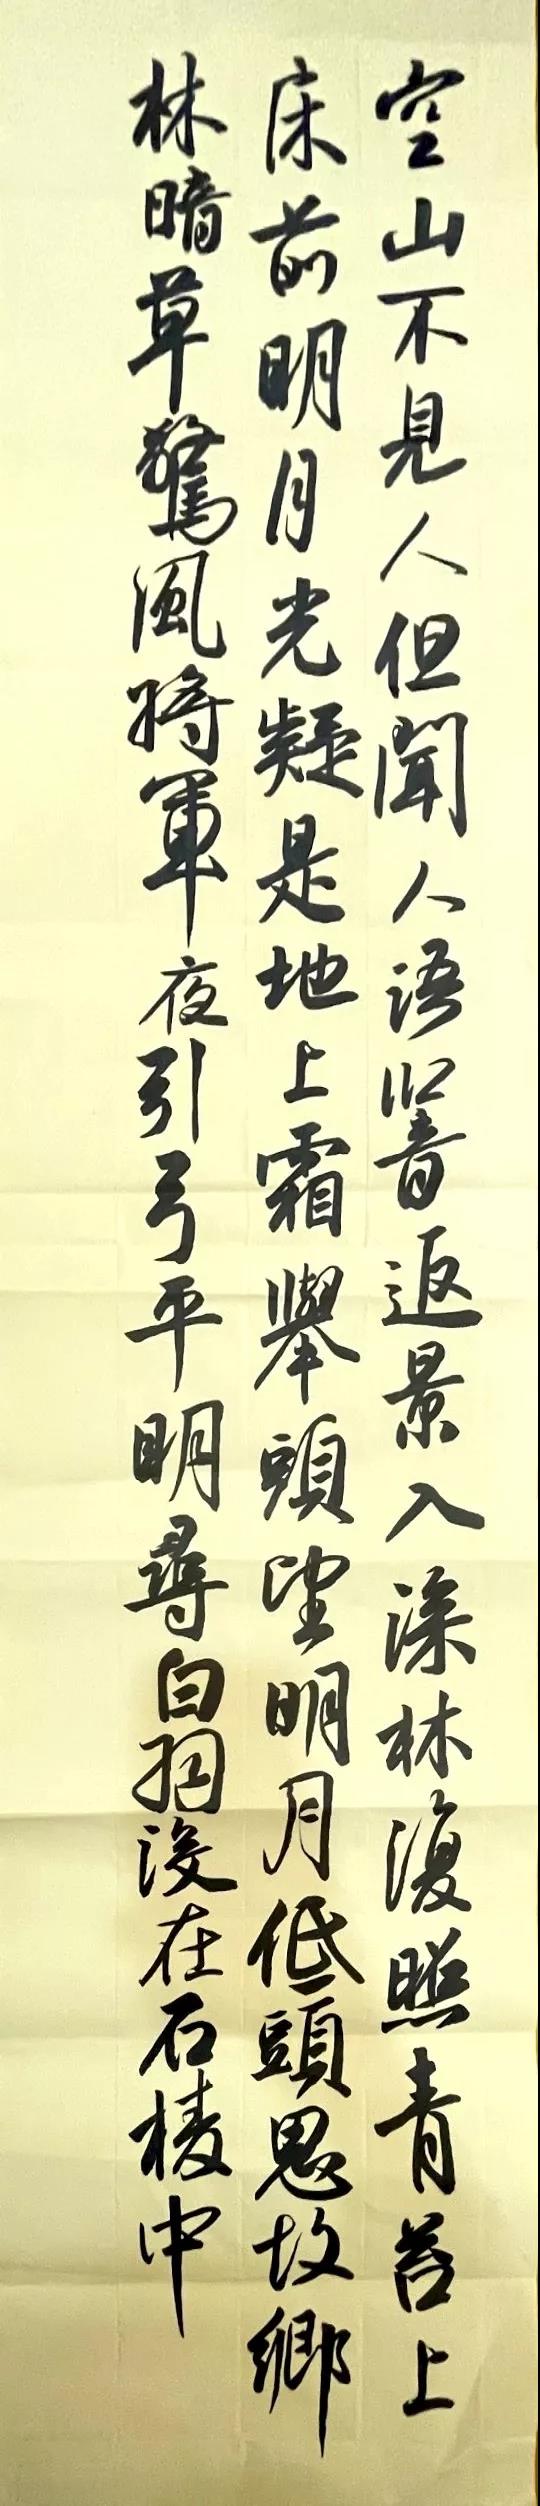 空山不見人但聞人語響返景入深林復照青苔上
床前明月光疑是地上霜舉頭望明月低頭思故鄉
林暗草驚風將軍夜引弓平明尋白羽沒在石棱中